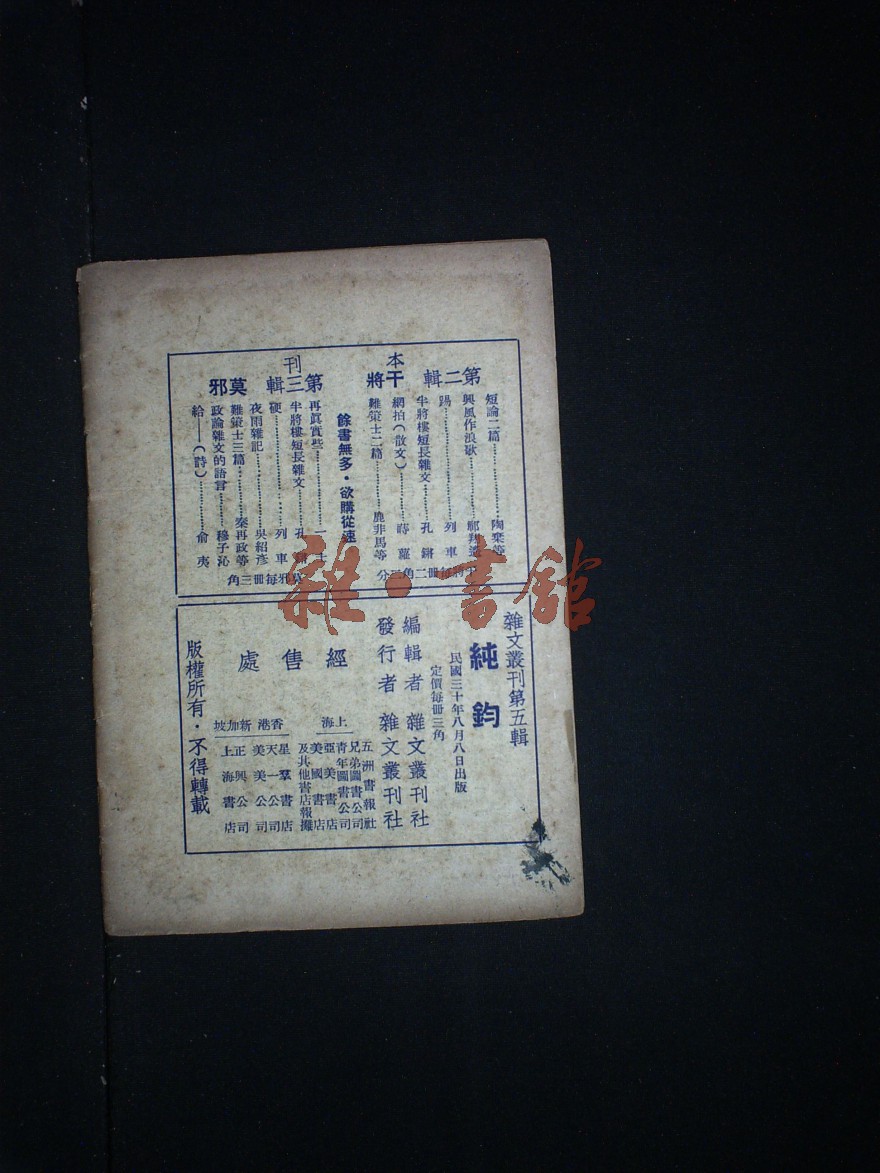 本刊
第二輯 干將
短論二篇…………陶棄等
興風作浪歟
踢…………列車
半將樓短長雜文……孔鏘
網拍(散文)……蒔蘿
難策士二篇……鹿非馬等
餘書無多·欲購從速
第三輯 莫邪
再眞實些
半將樓短長雜文
硬…………列車
夜雨雜記…………吳紹彥
難策士三篇……秦再政等
政論雜文的語言……穆子沁
給——(詩)…………俞夷
莫邪每冊三角
雜文叢刊第五輯
純鈞
民國三十年八月八日出版
定價每冊三角
編輯者 雜文叢刊社
發行者 雜文叢刊社
經售處
上海
五洲書報社
兄弟圖書公司
青年圖書公司
亞美書店
美國書店
及其他書店報攤
香港
星羣書店
天一公司
美美公司
新加坡
正興公司
上海書店
版權所有·不得轉載
雜·書館